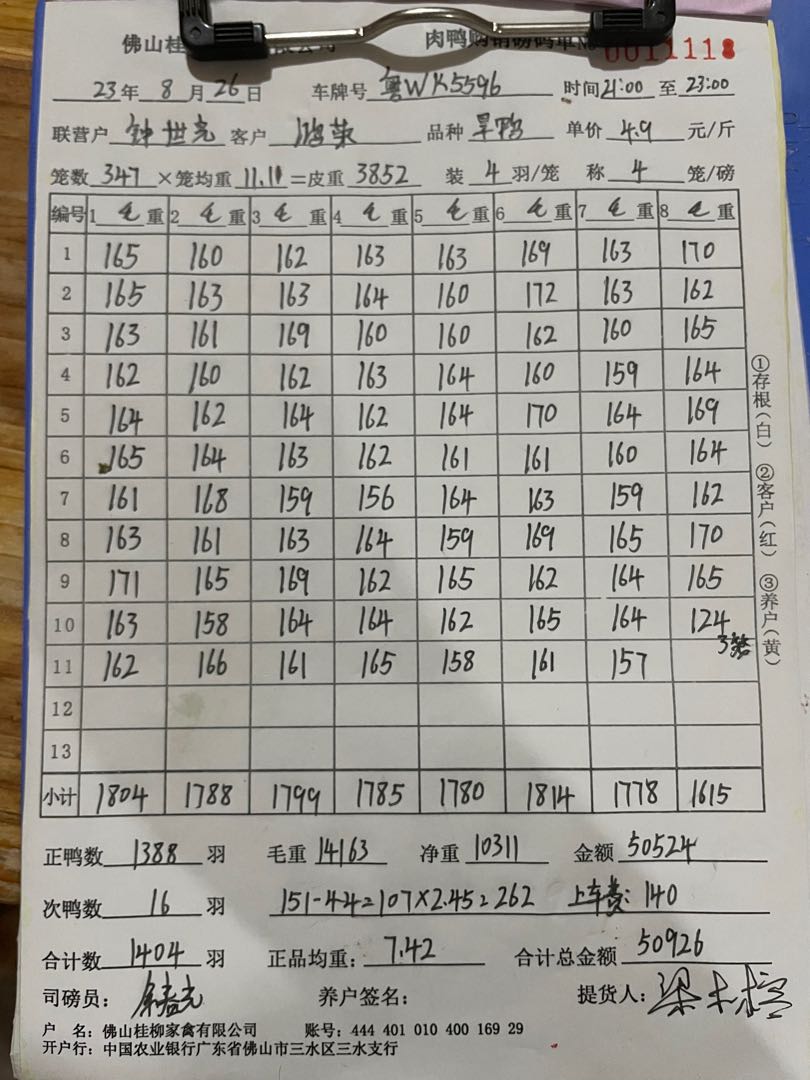 佛山桂 肉鸭购销磅码单№ 0011118
23年 8 月 26 日 车牌号 粤WK5596 时间21:00 至 23:00
联营户 钟世亮 客户 鸿荣 品种 旱鸭 单价 4.9 元/斤
笼数 347 ×笼均重 11.11 =皮重 3852 装 4 羽/笼 称 4 笼/磅
编号 1 毛 重 2 毛 重 3 毛 重 4 毛 重 5 毛 重 6 毛 重 7 毛 重 8 毛 重
1 165 160 162 163 163 169 163 170
2 165 163 163 164 160 172 163 162
3 163 161 169 160 160 162 160 165
4 162 160 162 163 164 160 159 164
5 164 162 164 162 164 170 164 169
6 165 164 163 162 161 161 160 164
7 161 168 159 156 164 163 159 162
8 163 161 163 164 159 169 165 170
9 171 165 169 162 165 162 164 165
10 163 158 164 164 162 165 164 124
3笼
11 162 166 161 165 158 161 157
12
13
小计 1804 1788 1799 1785 1780 1814 1778 1615
①存根(白) ②客户(红) ③养户(黄)
正鸭数 1388 羽 毛重 14163 净重 10311 金额 50524
次鸭数 16 羽 151-44=107×2.45=262 上车费:140
合计数 1404 羽 正品均重: 7.42 合计总金额 50926
司磅员: 养户签名: 提货人:
户 名: 佛山桂柳家禽有限公司 账号: 444 401 010 400 169 29
开户行: 中国农业银行广东省佛山市三水区三水支行